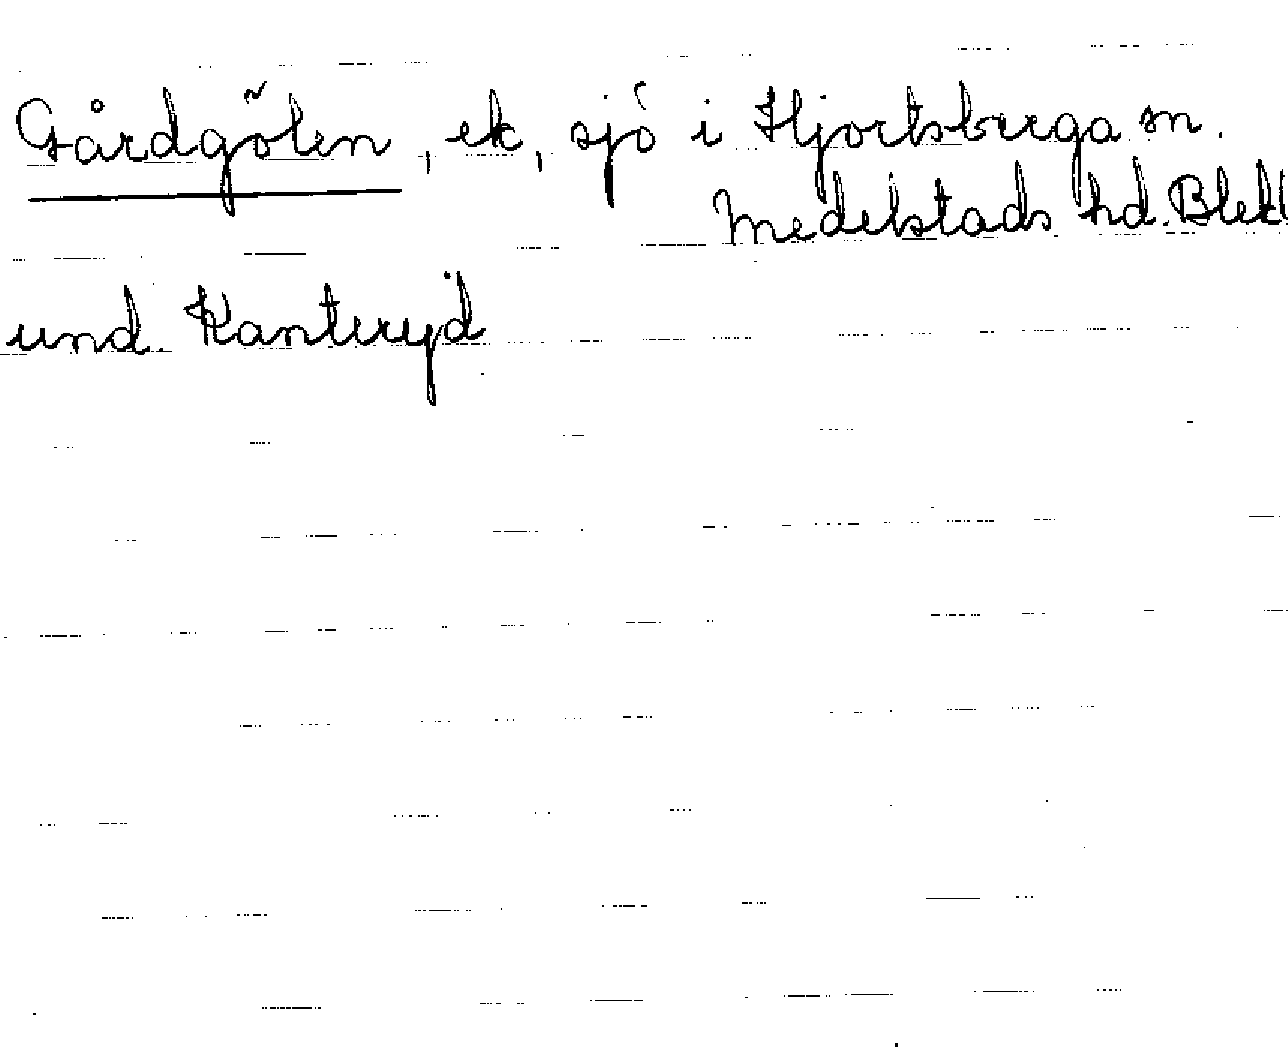 Gårdgölen, ek, sjö i Hjortsberga sn.
Medelstads hd. Blekl
und. Kanteryd